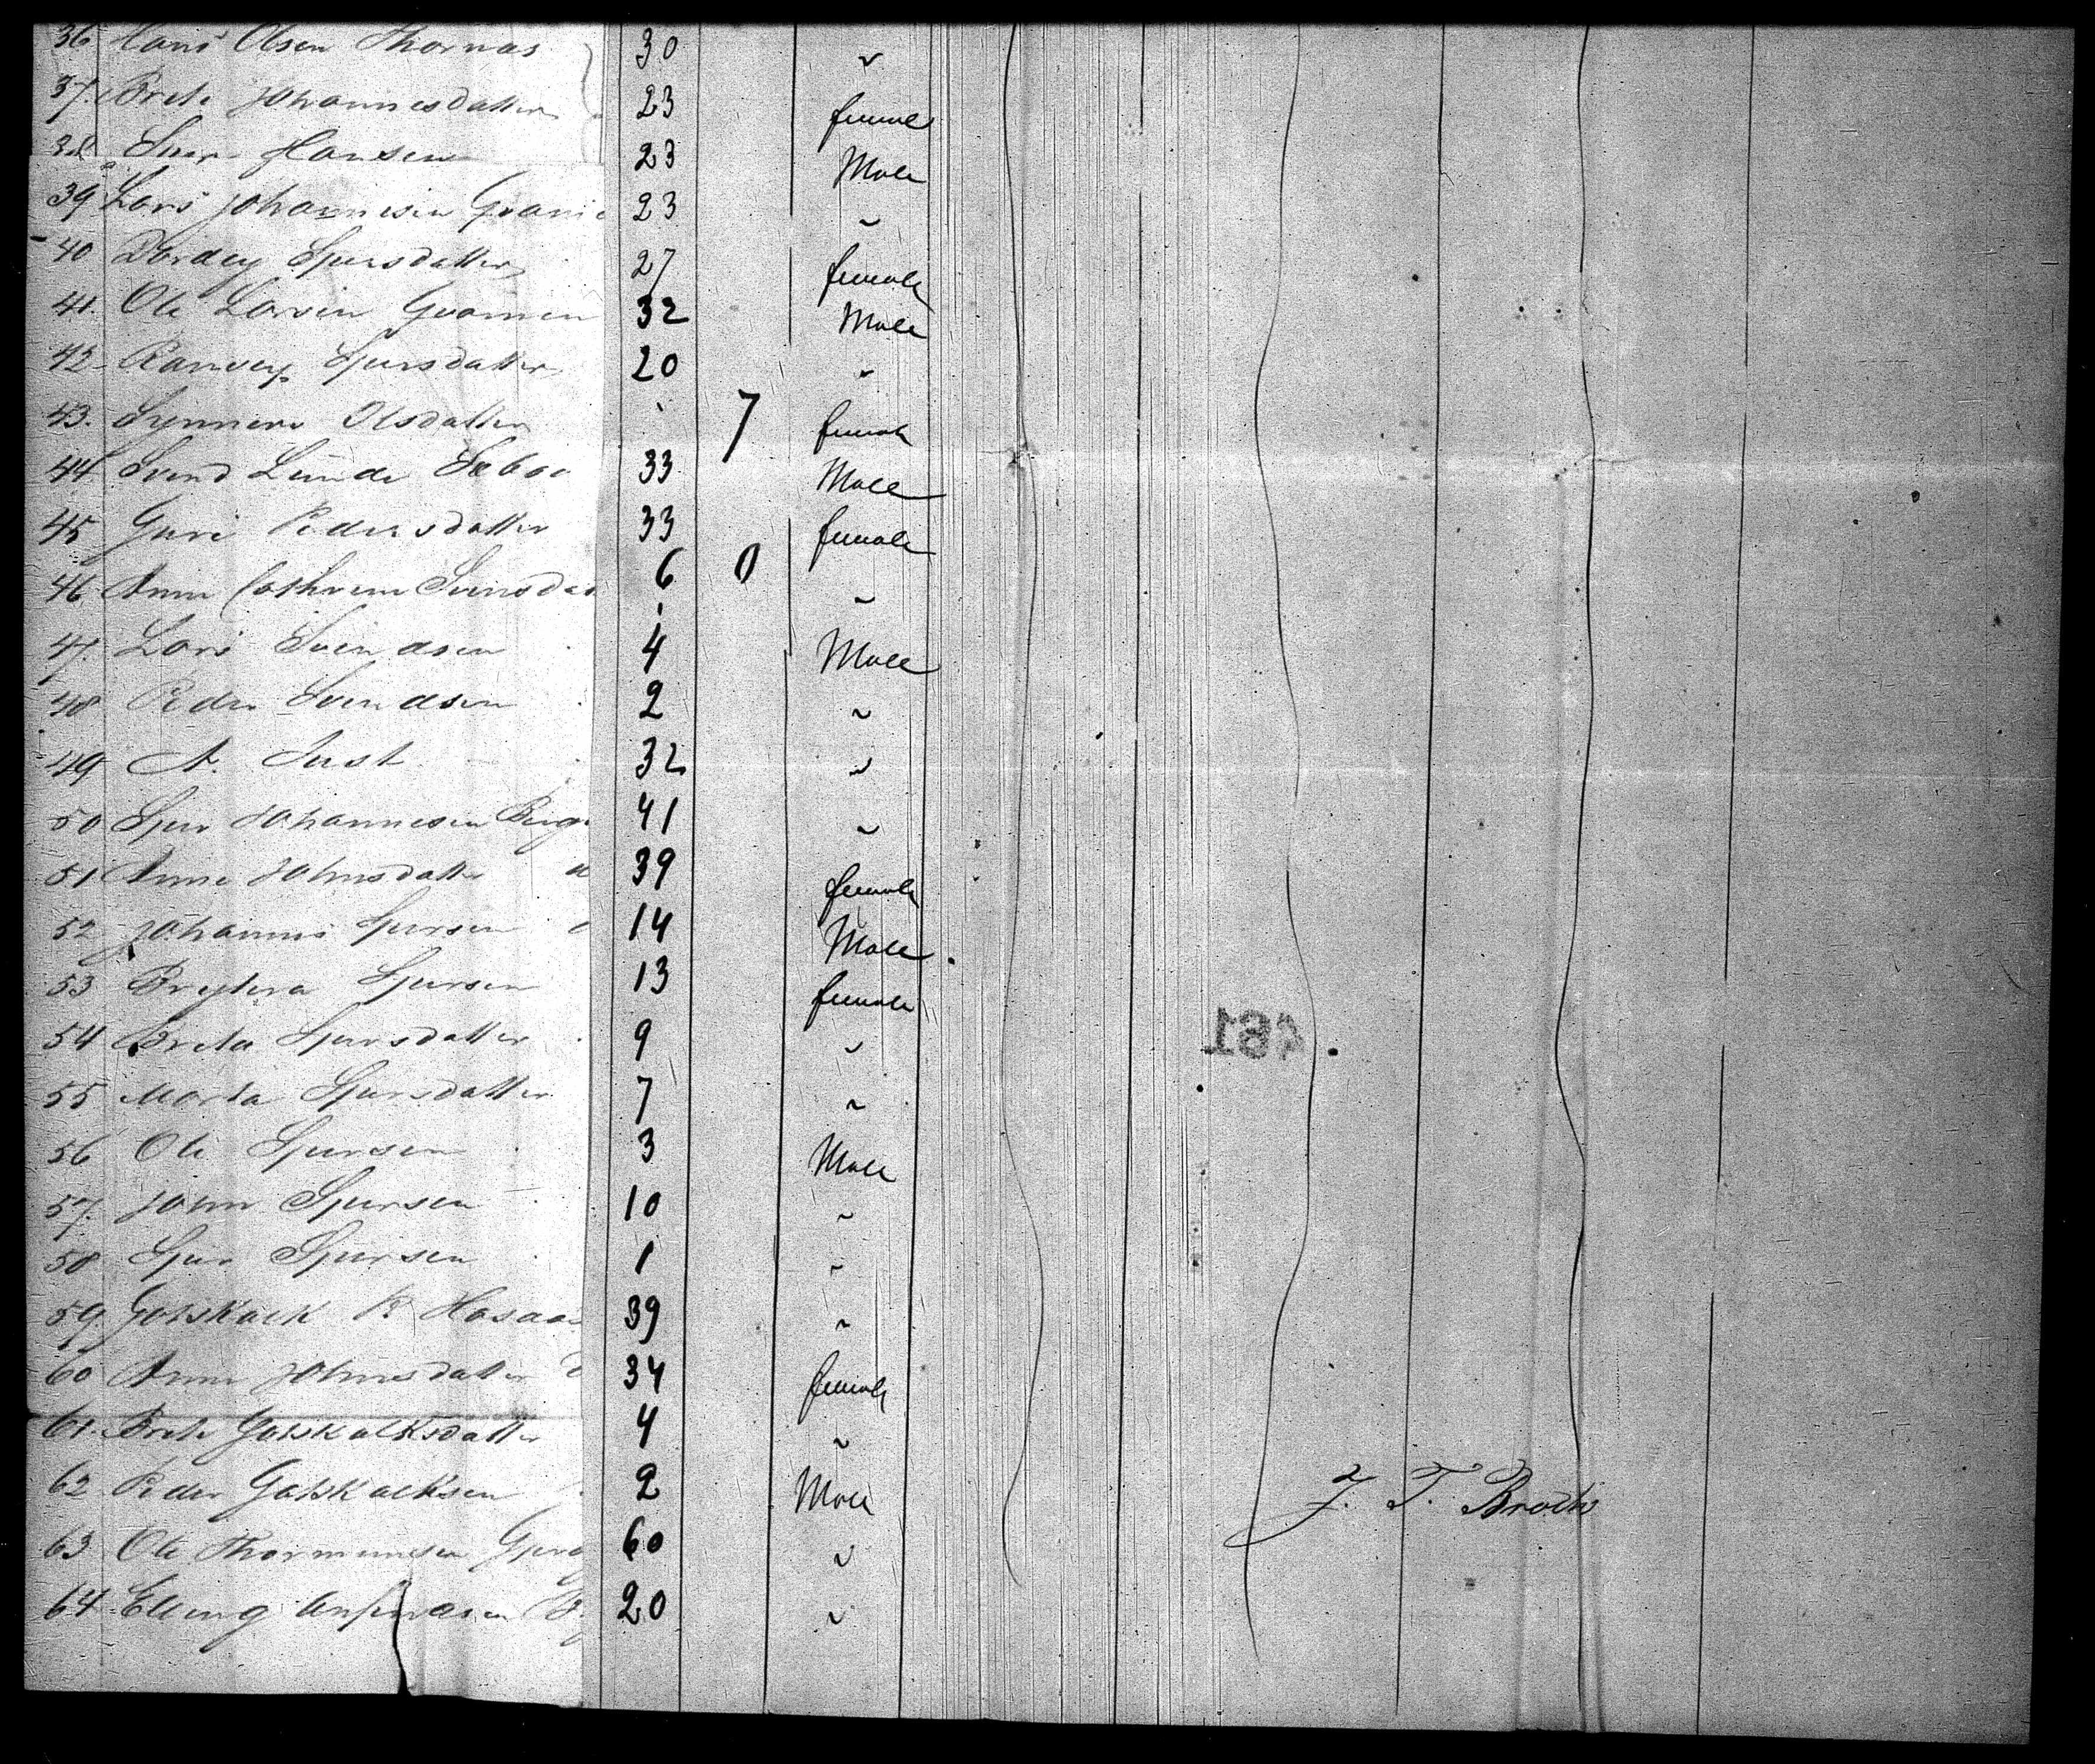 36 Hans Olsen Thornas 30 "
37. Brita Johannesdatter 23 female
38 Iver Hansen 23 Male
39 Lars Johannesen 23 "
40 Sjursdatter 27 female
41. Ole Larsen 32 Male
42 Sjursdatter 20 "
43. Olsdatter 7 female
44 Svend Lunde 33 Male
45 Guri Pedersdatter 33 female
46. Anna 6 0 "
47. Lars Svendsen 4 Male
48 Peder Svendsen 2 "
49 A. 32 "
50 Sjur Johannesen 41 "
51 Anna Johnsdatter 39 female
52 Johannis Sjursen 14 Male
53 Sjursen 13 female
54 Brita Sjursdatter 9 "
55 Marta Sjursdatter 7 "
56 Ole Sjursen 3 Male
57. John Sjursen 10 "
58 Sjur Sjursen 1 "
59. Gotskalk 39 "
60 Anna Johnsdatter 34 female
61. Brita Gotskalksdatter 4 "
62 Peder Gotskalksen 2 Male
63 Ole 60 "
64 Elling 20 "
461
J. T. Broch